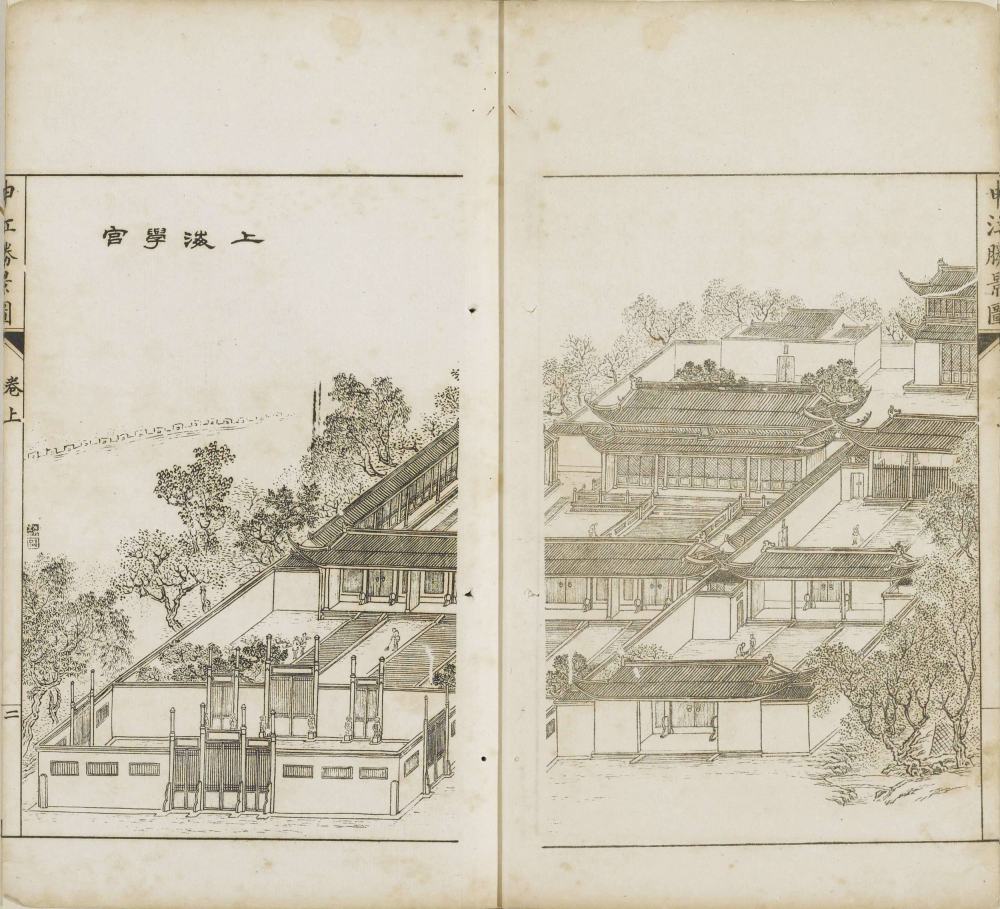 申江勝景圖
上海學宮
申江勝景圖
卷上
二